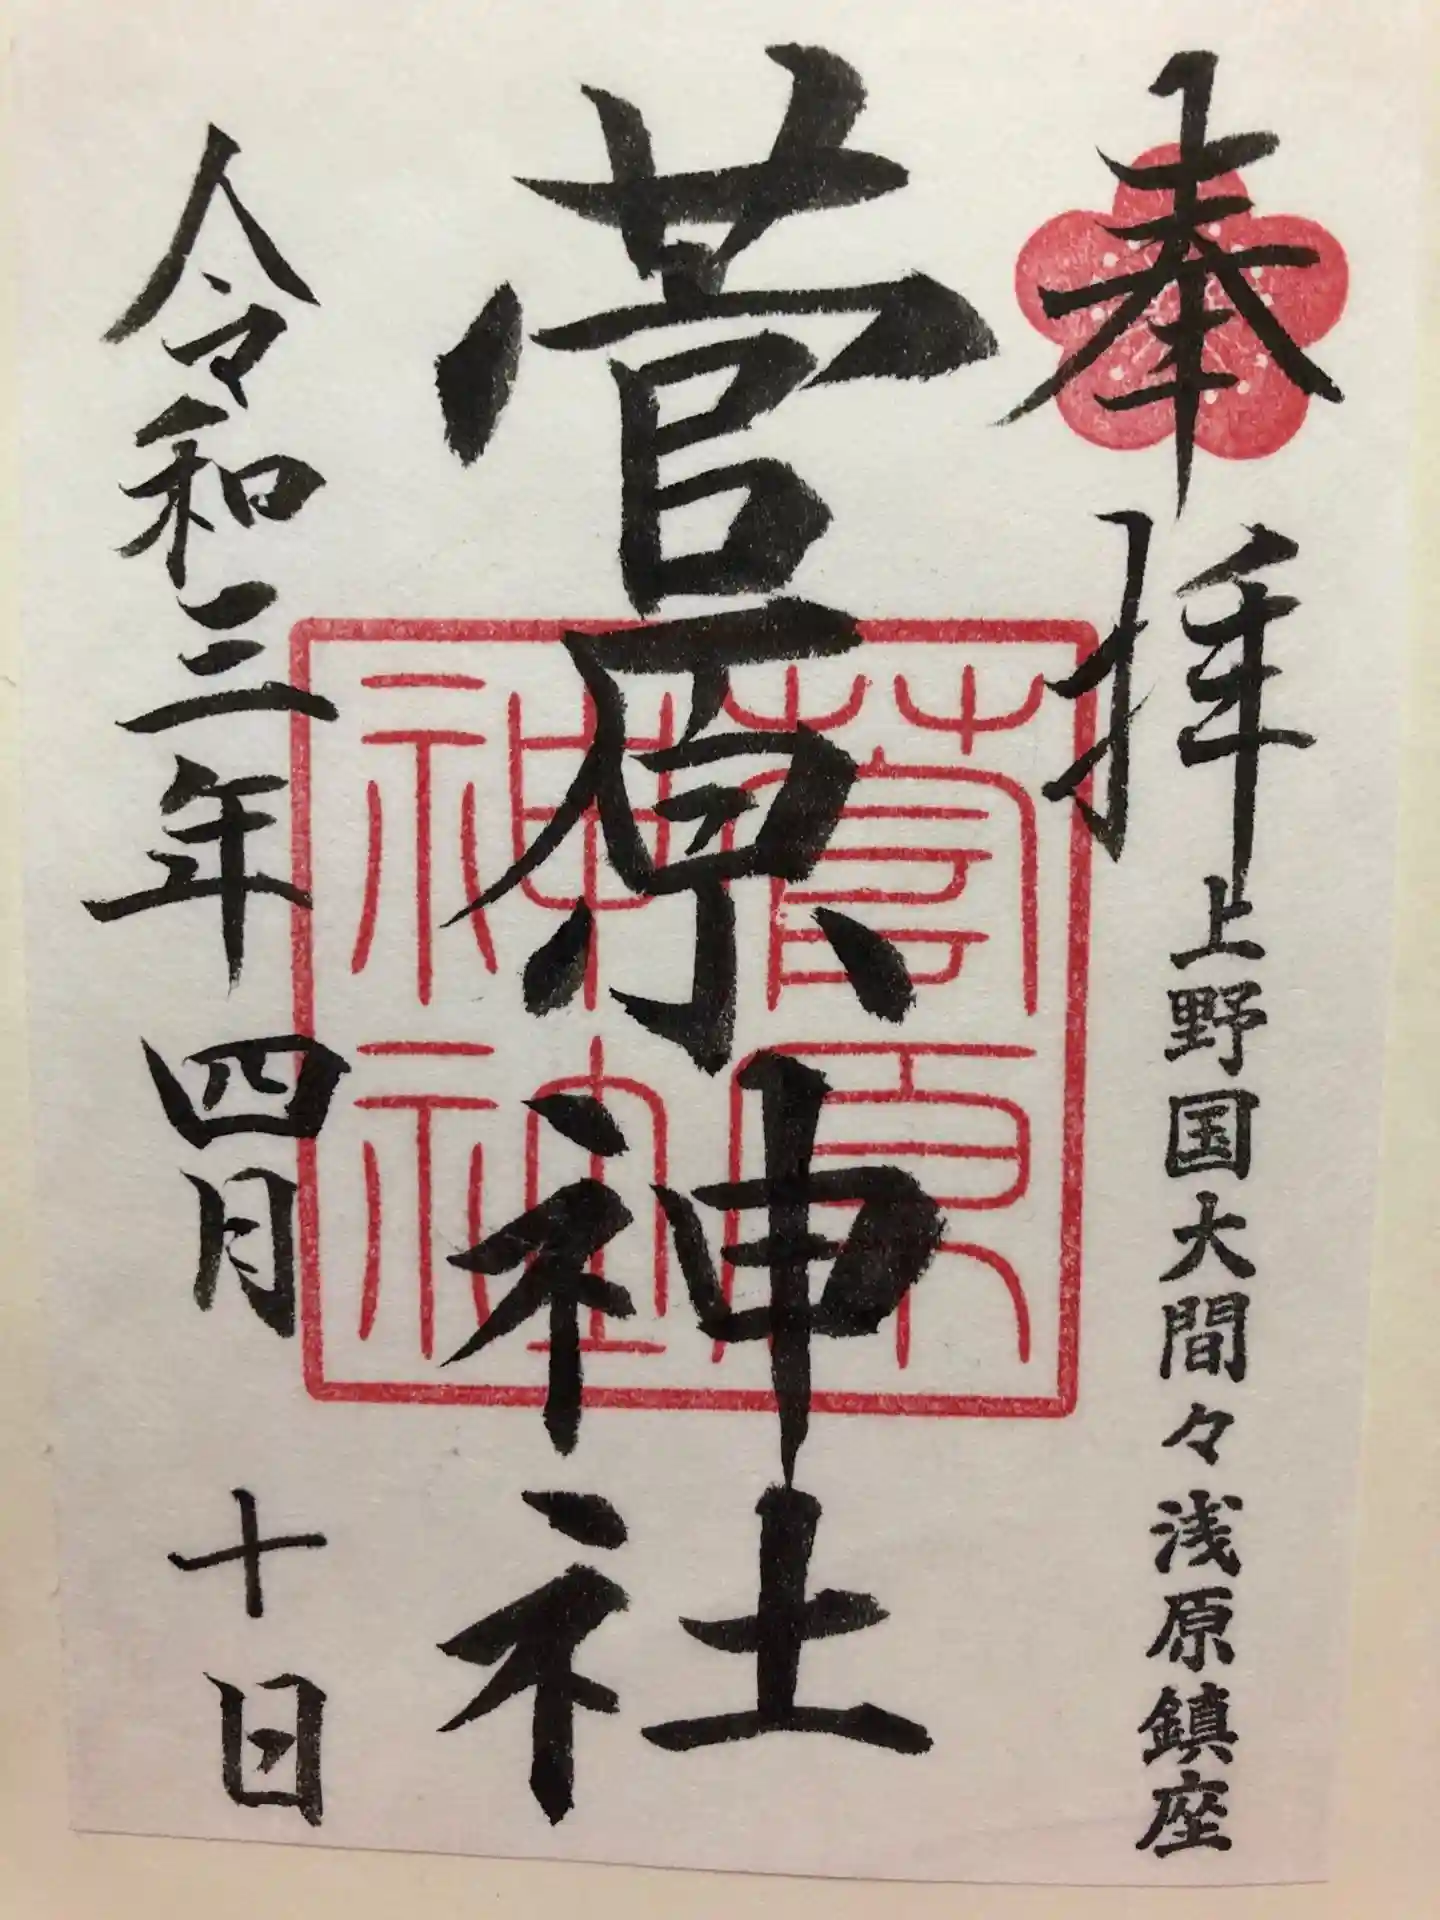 奉拝
上野国大間々浅原鎮座
菅原神社
菅原神社
令和三年四月十日